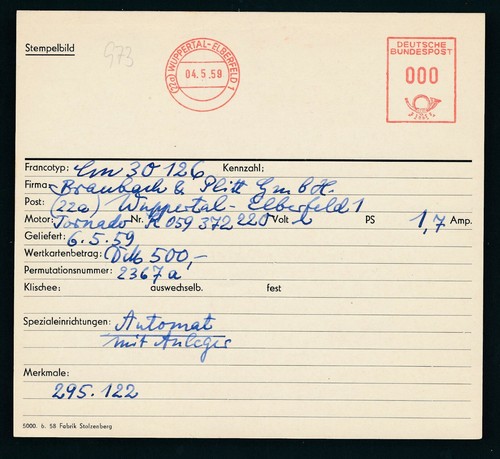 Stempelbild
973
(22a) WUPPERTAL-ELBERFELD 1
04.5.59
DEUTSCHE
BUNDESPOST
000
Francotyp: Cm 30 126 Kennzahl:
Firma Braubach & Plitt GmbH.
Post: (22a) Wuppertal-Elberfeld 1
Motor: Tornado Nr. K 059 372 220 Volt ~ PS 1,7 Amp.
Geliefert: 6.5.59
Wertkartenbetrag: DM 500,-
Permutationsnummer: 2367a
Klischee: auswechselb. fest
Spezialeinrichtungen: Automat
mit Anleger
Merkmale:
295.122
5000. 6. 58 Fabrik Stolzenberg